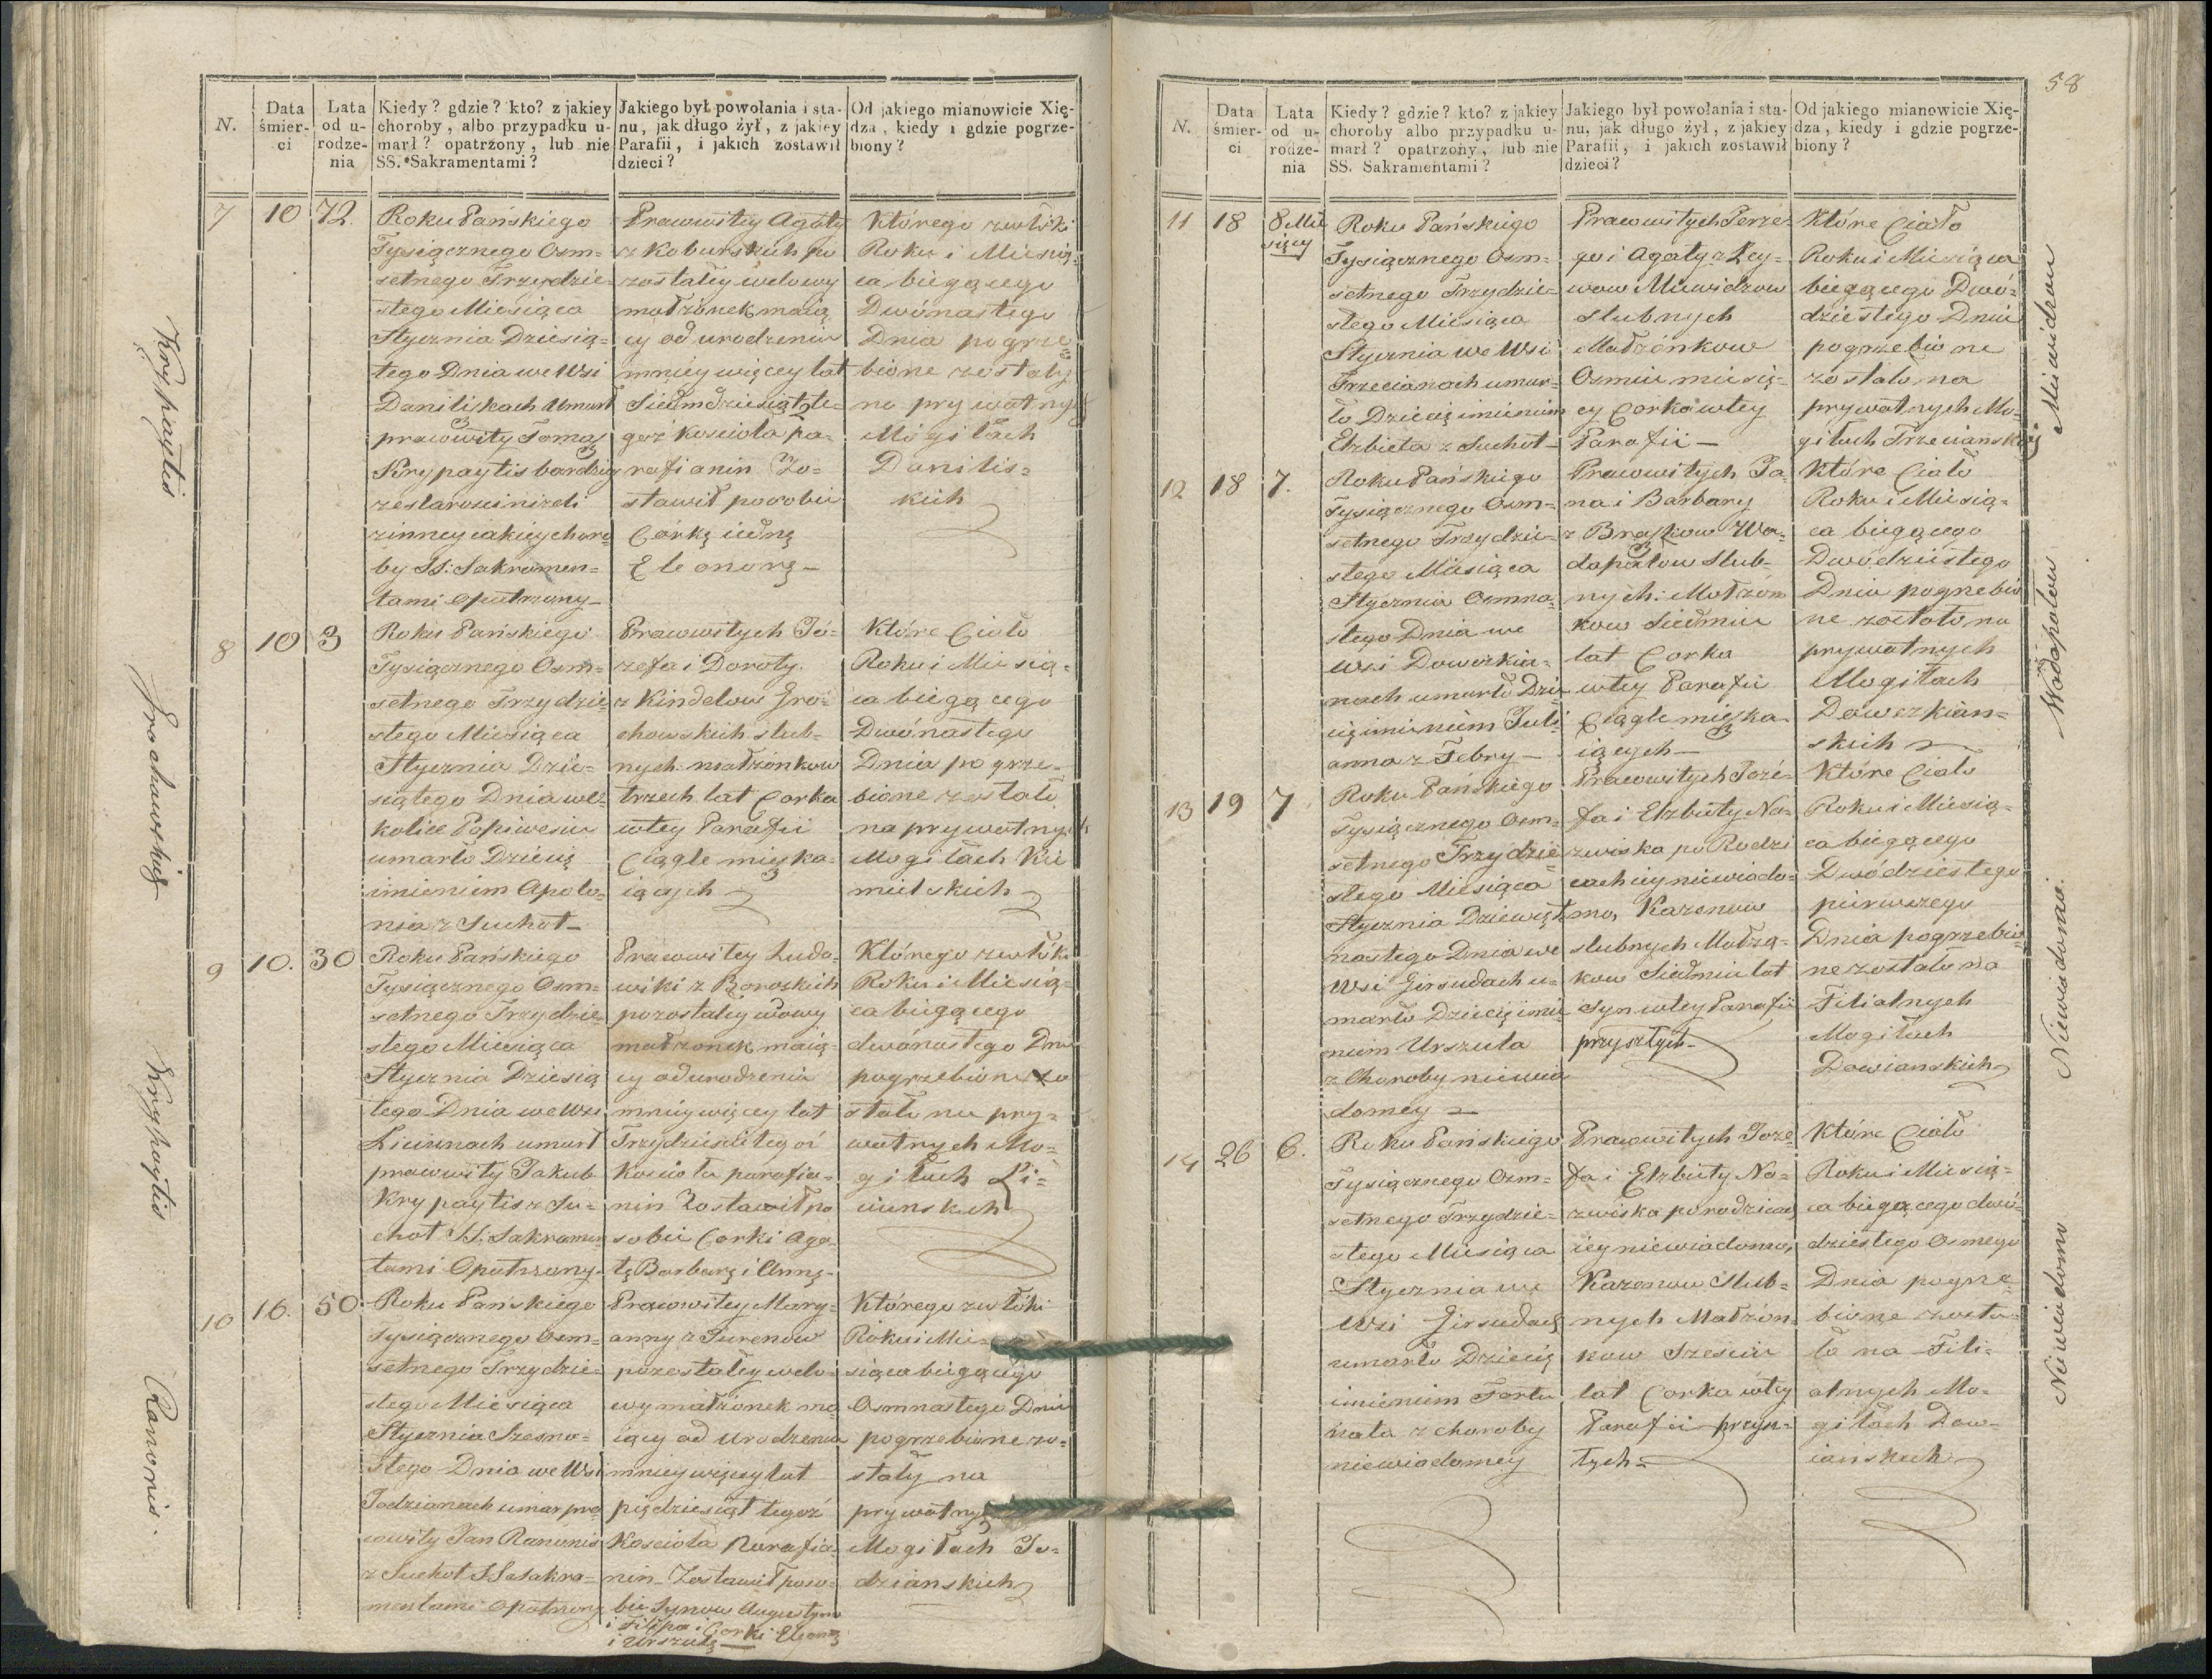 58
N.
Data śmier-ci
Lata od u-rodze-nia
Kiedy? gdzie? kto? z jakiey
choroby, albo przypadku u-
marł? opatrzony, lub nie
SS. Sakramentami?
Jakiego był powołania i sta-
nu, jak długo żył, z jakiey
Parafii, i jakich zostawił
dzieci?
Od jakiego mianowicie Xię-
dza, kiedy i gdzie pogrze-
biony?
Krypaytis
7
10
72.
Roku Pańskiego
Tysiącznego Osm=
setnego Trzydzie=
stego Miesiąca
Stycznia Dziesią=
tego Dnia we Wsi
Daniliszkach Umarł
pracowity Tomasz
Krypaytis bardziey
ze starosci niżeli
z inney iakiey choro
by SS: Sakramen=
tami Opatrzony
Pracowitey Agaty
z Koburskich po
zostałey wdowy
małżonek maią
cy od urodzenia
mniey więcey lat
Siedmdziesiąt 2 te=
goż kosciola pa=
rafianin Zo=
stawił po sobie
Corkę iedną
Eleonorę
Którego zwłoki
Roku i Miesią=
ca biegącego
Dwónastego
Dnia pogrze=
bione zostały
na prywatnych
Mogiłach
Danilis=
kich
Grochowskiey
8
10
3
Roku Pańskiego
Tysiącznego Osm=
setnego Trzydzie=
stego Miesiąca
Stycznia Dzie=
siątego Dnia w O=
kolice Popiwesiu
umarło Dziecię
imieniem Apolo=
nia z Suchot
Pracowitych Jó=
zefa i Doroty
z Kindelow Gro=
chowskich slub=
nych małżónkow
trzech lat Corka
wtey Parafii
Ciągle mięszka=
iących
Które Ciało
Roku i Miesią=
ca biegącego
Dwónastego
Dnia pogrze=
bione zostało
na prywatnych
Mogiłach Kie
mielskich
Krypaytis
9
10.
30
Roku Pańskiego
Tysiącznego Osm=
setnego Trzydzie=
stego Miesiąca
Stycznia Dziesią
tego Dnia we Wsi
Liciunach umarł
pracowity Jakub
Krypaytis z Su=
chot SS. Sakramen
tami Opatrzony
Pracowitey Ludo=
wiki z Boroskich
pozostałey wdowy
małżonek maią=
cy od urodzenia
mniey więcey lat
Trzydziesci tegoż
Kościoła parafia=
nin Zostawił po
sobie Corki Aga
tę Barbarę i Annę
Którego zwłóki
Roku i Miesią=
ca biegącego
dwónastego Dnia
pogrzebione zo
stało na pry=
watnych Mo=
giłach Li=
ciunskich
Ranonis.
10
16.
50.
Roku Pańskiego
Tysiącznego Osm=
setnego Trzydzie=
stego Miesiąca
Stycznia Szesna=
stego Dnia we Wsi
Jodzianach umar pra
cowity Jan Ranonis
z Suchot SS Sakra=
mentami Opatrzony
Pracowitey Mary=
anny z Jurenow
pozostałey wdo=
wy małżónek ma
iący od urodzenia
mniey więcey lat
piędziesiąt tegoż
Kosciola Parafia=
nin Zostawił po so=
bie Synow Augustyna
i Filipa i Corki
i Urszulę
Którego zwłóki
Roku i Mie=
siąca biegącego
Osmnastego Dnia
pogrzebione zo=
stały na
prywatnych
Mogiłach Jo=
dzianskich
N.
Data śmier-ci
Lata od u-rodze-nia
Kiedy? gdzie? kto? z jakiey
choroby albo przypadku u-
marł? opatrzony, lub nie
SS. Sakramentami?
Jakiego był powołania i sta-
nu, jak długo żył, z jakiey
Parafii, i jakich zostawił
dzieci?
Od jakiego mianowicie Xię-
dza, kiedy i gdzie pogrze-
biony?
11
18
8 Mie
sięcy
Roku Pańskiego
Tysiącznego Osm=
setnego Trzydzie=
stego Miesiąca
Stycznia we Wsi
Trzecianach umar=
ło Dziecię imieniem
Elzbieta z Suchot
Pracowitych Jerze=
go i Agaty z Ley=
wow Miewidzow
Slubnych
Małżónkow
Osmiu miesię=
cy Corka wtey
Parafii
Które Ciało
Roku i Miesiąca
biegącego Dwó=
dziestego Dnia
pogrzebione
zostało na
prywatnych Mo=
giłach Trzecianskiej
Miewidzow
12
18
7.
Roku Pańskiego
Tysiącznego Osm=
setnego Trzydzie=
stego Miesiąca
Stycznia Osmna=
stego Dnia we
Wsi Dowerkia=
nach umarło Dzie
cię imieniem Juli
anna z Febry
Pracowitych Ja=
na i Barbary
z Braszkow Wo=
dopałow Slub=
nych: Małżon
kow Siedmiu
lat Corka
wtey Parafii
Ciągle mieszka=
iących
Które Ciało
Roku i Miesią=
ca biegącego
Dwódziestego
Dnia pogrzebio
ne zostało na
prywatnych
Mogiłach
Dowerkian=
skich
Wodopałow
13
19
7
Roku Pańskiego
Tysiącznego Osm=
setnego Trzydzie
stego Miesiąca
Stycznia Dziewięt
nastego Dnia we
Wsi Girsudach u=
marło Dziecię imie
niem Urszula
z Choroby niewia
domey
Pracowitych Józe=
fa i Elzbiety Na=
zwiska po Rodzi
cach iey niewiado=
mo, Kazenow
slubnych Małżą=
kow Siedmiu lat
Syn wtey Parafii
przyszłych
Które Ciało
Roku i Miesią=
ca biegącego
Dwódziestego
pierwszego
Dnia pogrzebio
ne zostało na
Filialnych
Mogiłach
Dowianskich
Niewiadomo.
14
26
6.
Roku Pańskiego
Tysiącznego Osm=
setnego Trzydzie=
stego Miesiąca
Stycznia we
Wsi Girsudach
umarło Dziecię
imieniem Fortu
nata z choroby
niewiadomey
Pracowitych Józe=
fa i Elzbiety Na=
zwiska po rodzicach
iey niewiadomo,
Kazenow Slub=
nych Małżón=
kow Szesciu
lat Corka wtey
Parafii przysz=
łych
Które Ciało
Roku i Miesią=
ca biegącego dwó=
dziestego Osmego
Dnia pogrze=
bione zosta=
ło na Fili=
alnych Mo=
giłach Dow=
iańskich
Niewiadomo